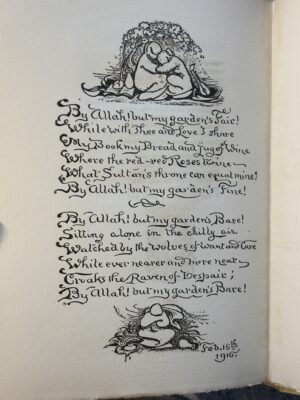 By Allah! but my garden's Fair!
While with Thee and Love I share
My Book my Bread and Jug of Wine
Where the red-red Roses twine-
What Sultan's throne can equal mine!
By Allah! but my garden's Fine!
By Allah! but my garden's Bare!
Sitting alone in the chilly air
Watched by the wolves of Want and Care
While ever nearer and more near-
Croaks the Raven of Despair;
By Allah! but my garden's Bare!
Feb. 15th
1916.